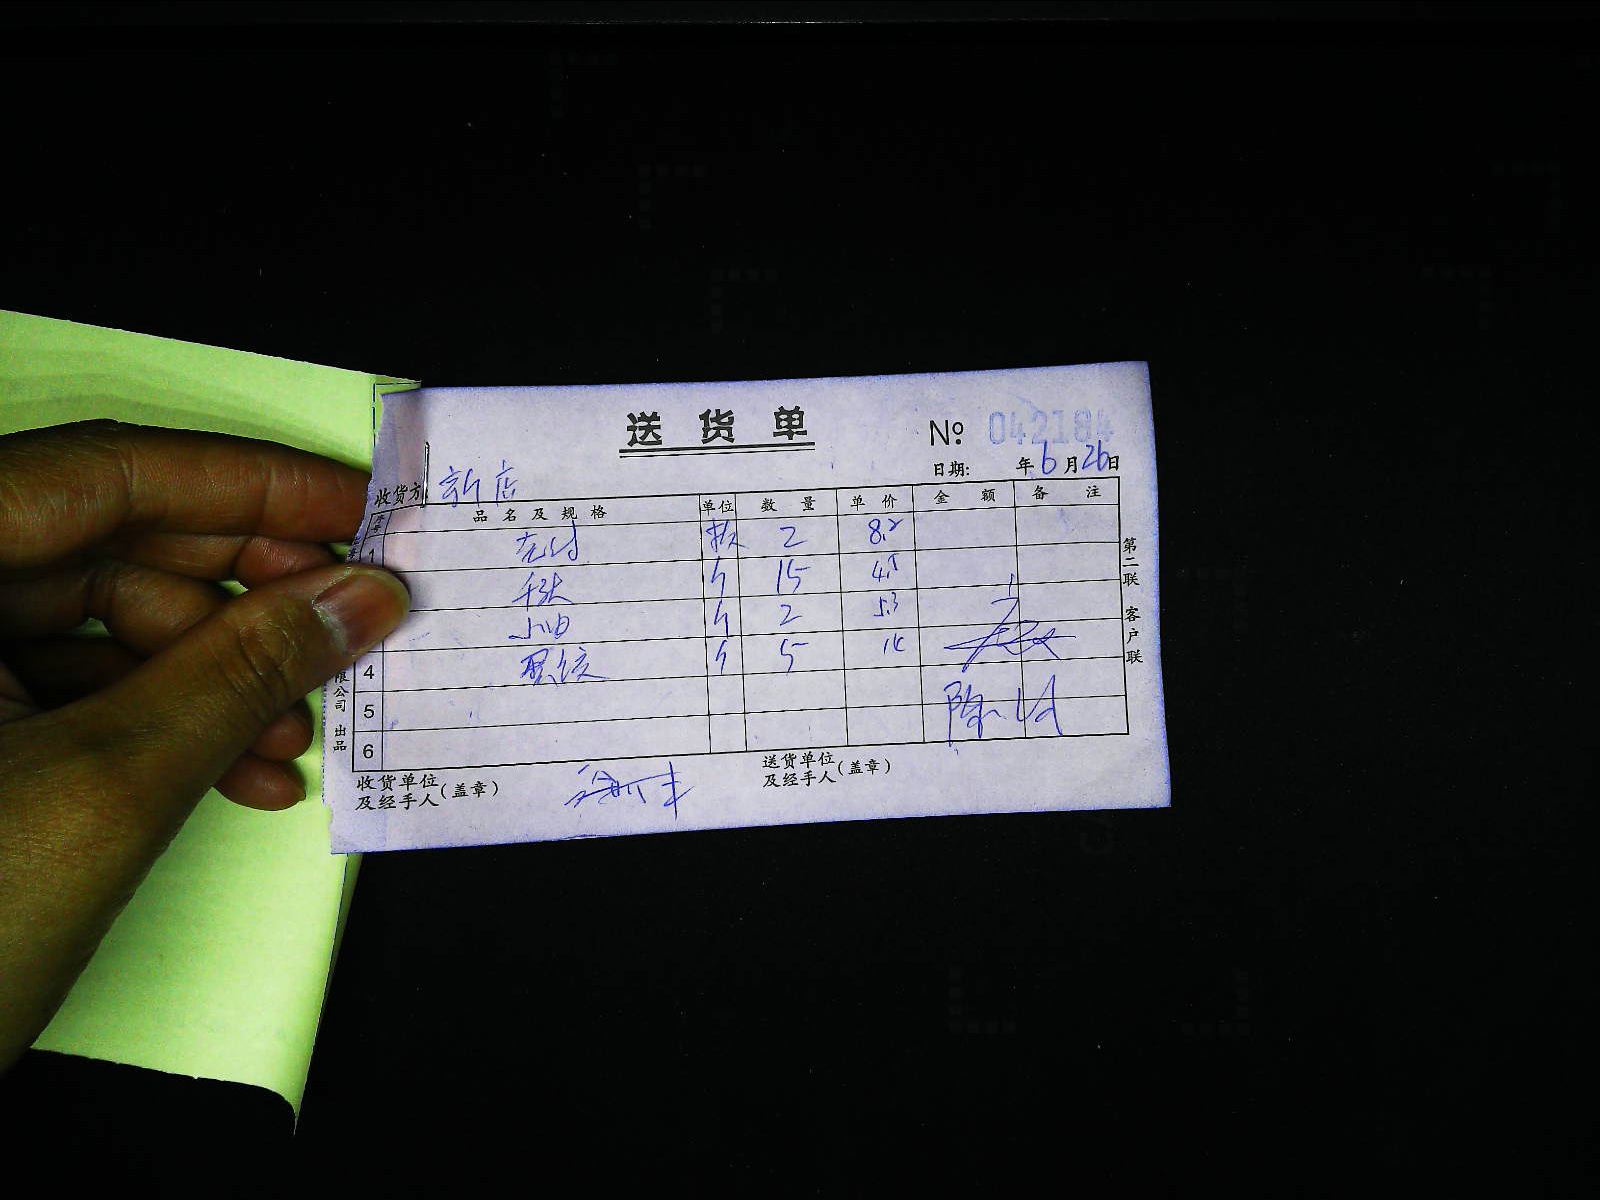 送货单
No 042184
日期: 年6月26日
收货方 新店
序号 品名及规格 单位 数量 单价 金额 备注
1 2 8.2
千张 斤 15 4.5
斤 2 5.3
4 斤 5 14
5
6
收货单位及经手人(盖章)
送货单位及经手人(盖章)
第二联 客户联
限公司 出品